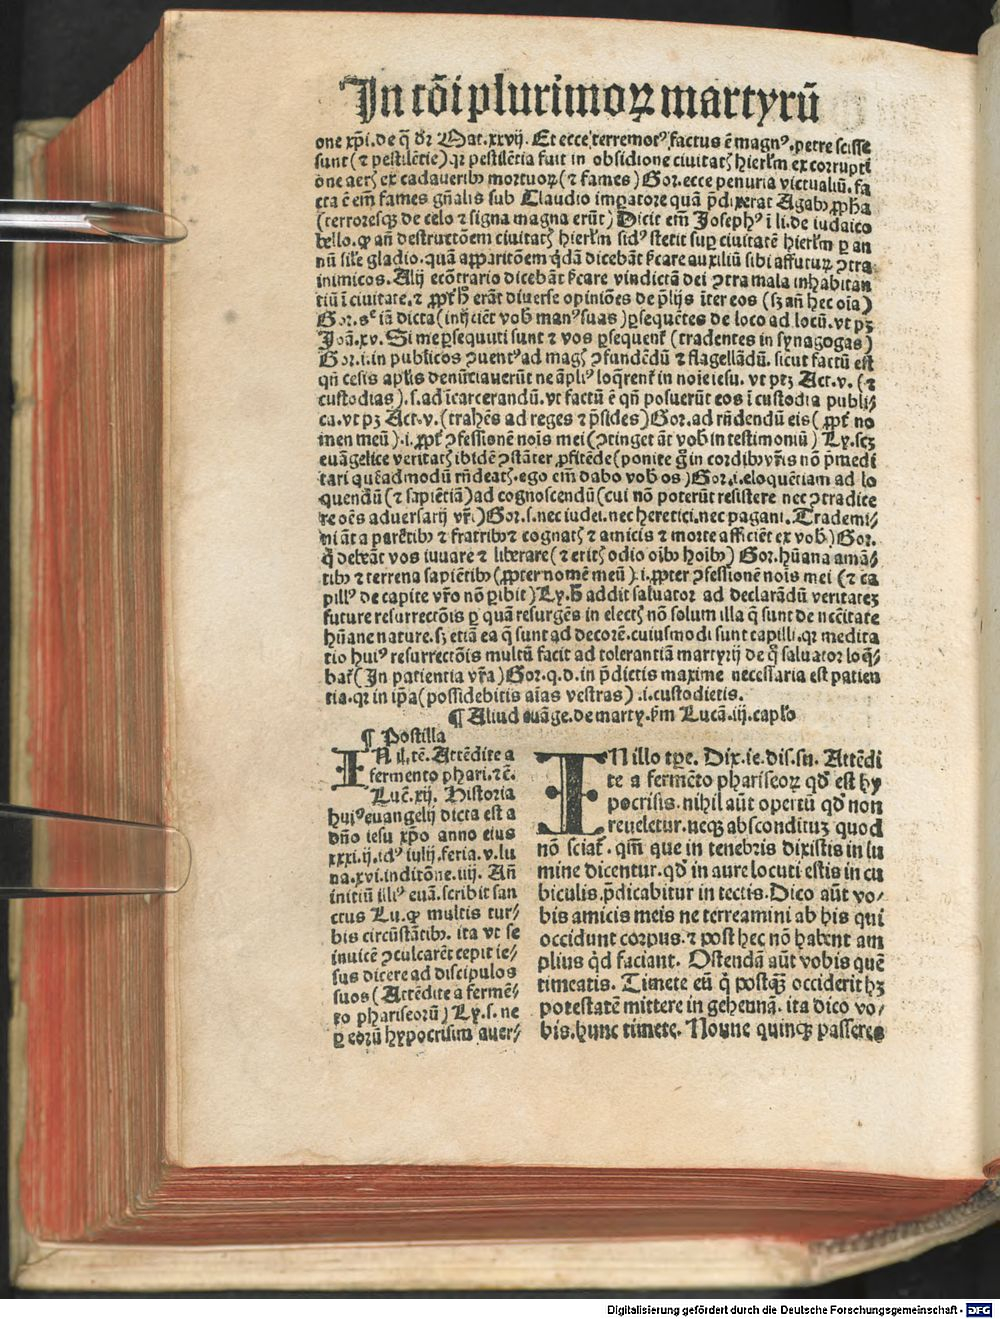 In cōi plurimoꝝ martyrū
one xp̄i. de q̄ dr̄ Mat. xxvij. Et ecce terremotꝰ factus ē magnꝰ. petre scisse
sunt (⁊ pestilētie) qꝛ pestilētia fuit in obsidione ciuitatꝭ hierl̄m ex corrupti
one aerꝭ ex cadaueribꝰ mortuoꝝ (⁊ fames) Gor. ecce penuria victualiū. fa
cta ē em̄ fames gn̄alis sub Claudio imꝑatore quā p̄dixerat Agabꝰ ꝓph̄a
(terroresqꝫ de celo ⁊ signa magna erūt) Dicit em̄ Josephꝰ ī li. de iudaico
bello. ꝙ an̄ destructōem ciuitatꝭ hierl̄m sidꝰ stetit suꝑ ciuitatē hierl̄m ꝑ an
nū sil̄e gladio. quā apparitōem qͥdā dicebāt p̄care auxiliū sibi affuturꝝ ꝯtra
inimicos. Alij ecōtrario dicebāt p̄care vindictā dei ꝯtra mala inhabitan
tiū ī ciuitate. ⁊ ꝓpt̄ hͦ erāt diuerse opiniōes de p̄lijs īter eos (sꝫ an̄ hec oīa)
Gor. sᶜ iā dicta (inijciēt vob̄ manꝰ suas) ꝑsequētes de loco ad locū. vt pꝫ
Joā. xv. Si me ꝑsequuti sunt ⁊ vos ꝑsequent̄ (tradentes in synagogas)
Gor. i. in publicos ꝯuentꝰ ad magꝭ ꝯfundēdū ⁊ flagellādū. sicut factū est
qn̄ cesis apl̄is denūtiauerūt ne āpliꝰ loq̄rent̄ in noīe iesu. vt ptꝫ Act. v. (⁊
custodias) .s. ad īcarcerandū. vt factū ē qn̄ posuerūt eos ī custodia publi⸗
ca. vt pꝫ Act. v. (trahēs ad reges ⁊ p̄sides) Gor. ad rn̄dendū eis (ꝓpt̄ no
men meū) .i. ꝓpt̄ ꝯfessionē noīs mei (ꝯtinget āt vob̄ in testimoniū) Ly. scꝫ
euāgelice veritatꝭ ibidē ꝯstāter ꝓfitēde (ponite g̊ in cordibꝰ vr̄is nō p̄medi
tari quēadmodū rn̄deatꝭ. ego em̄ dabo vob̄ os) Gor. i. eloquētiam ad lo
quendū (⁊ sapiētiā) ad cognoscendū (cui nō poterūt resistere nec ꝯtradice
re oēs aduersarij vr̄i) Gor. s. nec iudei. nec heretici. nec pagani. Trademi⸗
ni āt a parētibꝰ ⁊ fratribꝰ ⁊ cognatꝭ ⁊ amicis ⁊ morte afficiēt ex vob̄) Gor.
q̄ debāt vos iuuare ⁊ liberare (⁊ eritꝭ odio oībꝰ hoībꝰ) Gor. hūana amā⸗
tibꝰ ⁊ terrena sapiētibꝰ (ꝓpter nomē meū) .i. ꝓpter ꝯfessionē noīs mei (⁊ ca
pillꝰ de capite vr̄o nō ꝑibit) Ly. h̄ addit saluator ad declarādū veritateꝫ
future resurrectōis ꝑ quā resurgēs in electꝭ nō solum illa q̄ sunt de necc̄itate
hūane nature. sꝫ etiā ea q̄ sunt ad decorē. cuiusmodi sunt capilli. qꝛ medita
tio huiꝰ resurrectōis multū facit ad tolerantiā martyrij de qͦ saluator loq̄⸗
bat̄ (In patientia vr̄a) Gor. q. d. in p̄dictis maxime necessaria est patien
tia. qꝛ in ip̄a (possidebitis aīas vestras) .i. custodietis.
¶ Aliud euāge. de marty. ẜm Lucā. iij. capl̄o
¶ Postilla
IN il. tē. Attēdite a
fermento phari. ⁊c̄.
Luc̄. xij. Historia
huiꝰ euangelij dicta est a
dn̄o iesu xp̄o anno eius
xxxi. ij. idꝰ iulij. feria. v. lu
na. xvi. inditōne. iiij. An̄
initiū illiꝰ euā. scribit san
ctus Lu. ꝙ multis tur⸗
bis circūstātibꝰ. ita vt se
inuicē ꝯculcarēt cepit ie⸗
sus dicere ad discipulos
suos (Attēdite a fermē⸗
to phariseorū) Ly. s. ne
ꝑ eorū hypocrisim auer⸗
IN illo tꝑe. Dix. ie. dis. su. Attēdi
te a fermēto phariseoꝝ qd̄ est hy
pocrisis. nihil aūt opertū qd̄ non
reueletur. neqꝫ absconditūꝫ quod
nō sciat̄. qm̄ que in tenebris dixistis in lu
mine dicentur. qd̄ in aure locuti estis in cu
biculis. p̄dicabitur in tectis. Dico aūt vo⸗
bis amicis meis ne terreamini ab his qui
occidunt corpus. ⁊ post hec nō habent am
plius qͥd faciant. Ostendā aūt vobis quē
timeatis. Timete eū qͥ postqꝫ occiderit hꝫ
potestatē mittere in gehennā. ita dico vo⸗
bis. hunc timete. Nonne quinqꝫ passeres
Digitalisierung gefördert durch die Deutsche Forschungsgemeinschaft - DFG